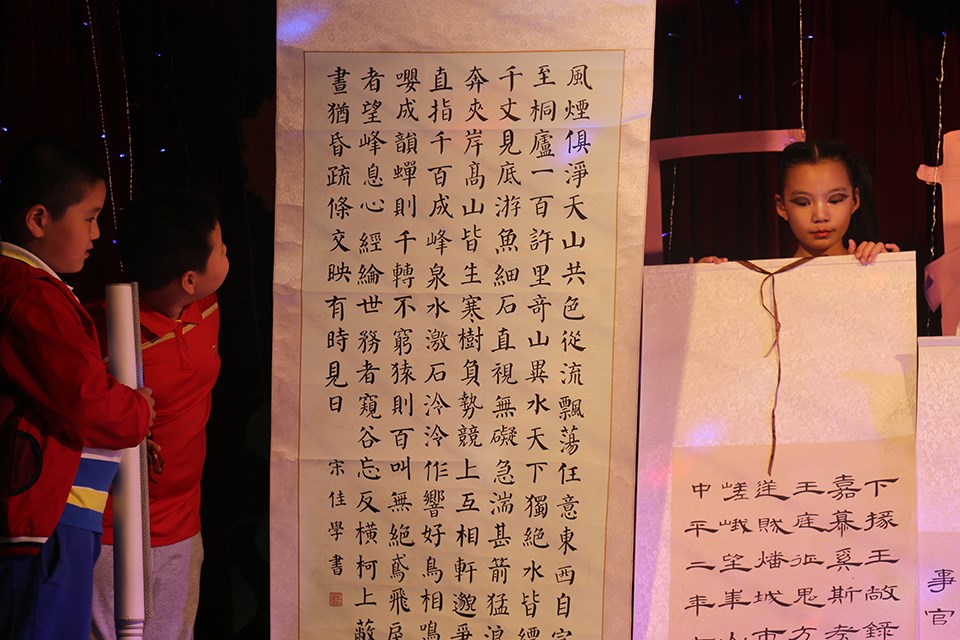 風煙俱淨天山共色從流飄蕩任意東西自
至桐廬一百許里奇山異水天下獨絕水皆縹
千丈見底游魚細石直視無礙急湍甚箭猛浪
奔夾岸髙山皆生寒樹負勢競上互相軒邈爭
直指千百成峰泉水激石泠泠作響好鳥相鳴
嚶成韻蟬則千轉不窮猿則百叫無絕鳶飛戾
者望峰息心經綸世務者窺谷忘反橫柯上蔽
晝猶昏疏條交映有時見日
宋佳學書
下掾王敞
嘉慕奚斯考
王庭征鬼方
逆賊燔城市
嵯峨望華山
中平二年
事官